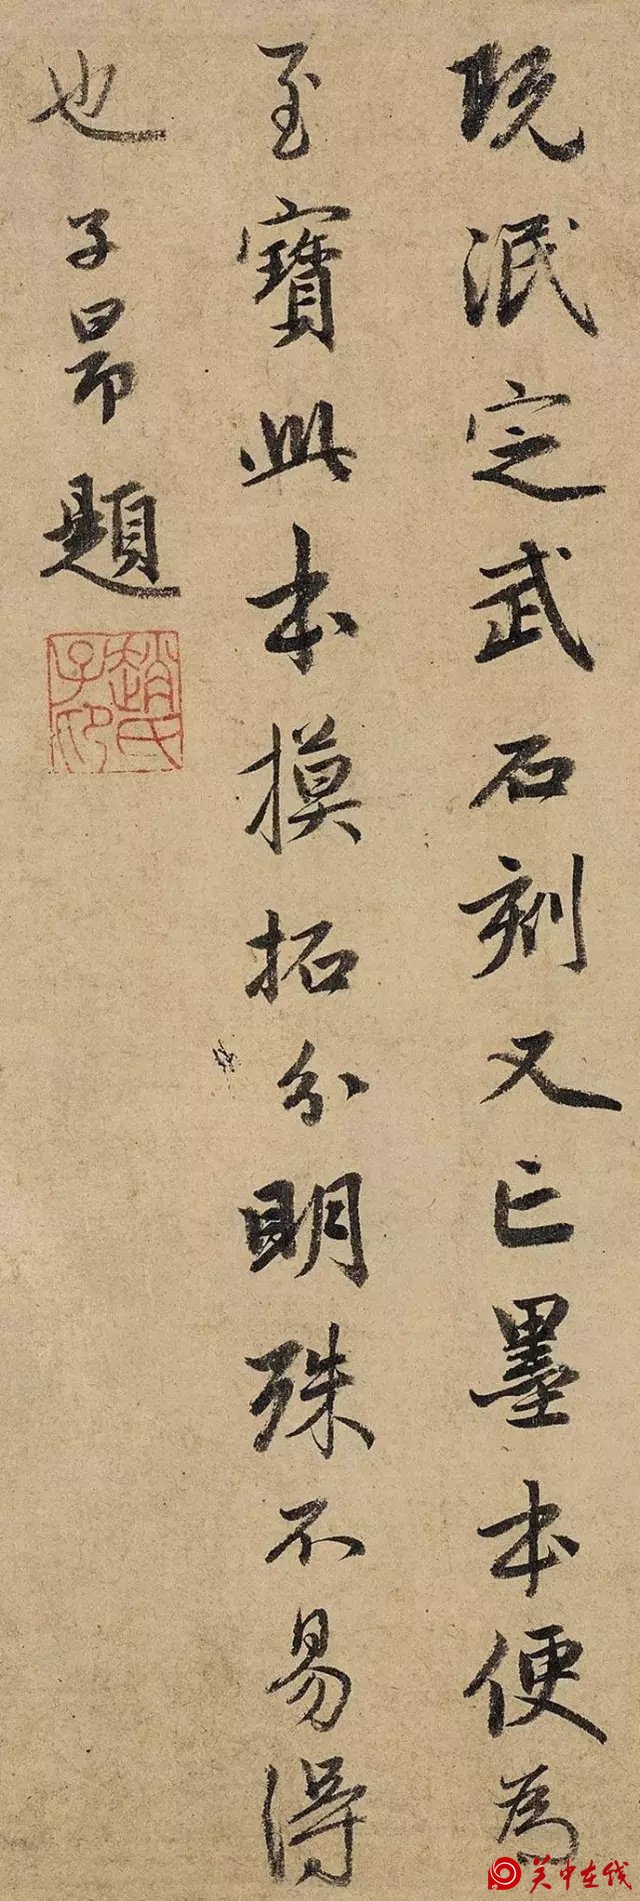 既泯定武石刻又亡墨本便為
至寶此本摸拓分明殊不易得
也子昂題
趙氏子印
关中在线